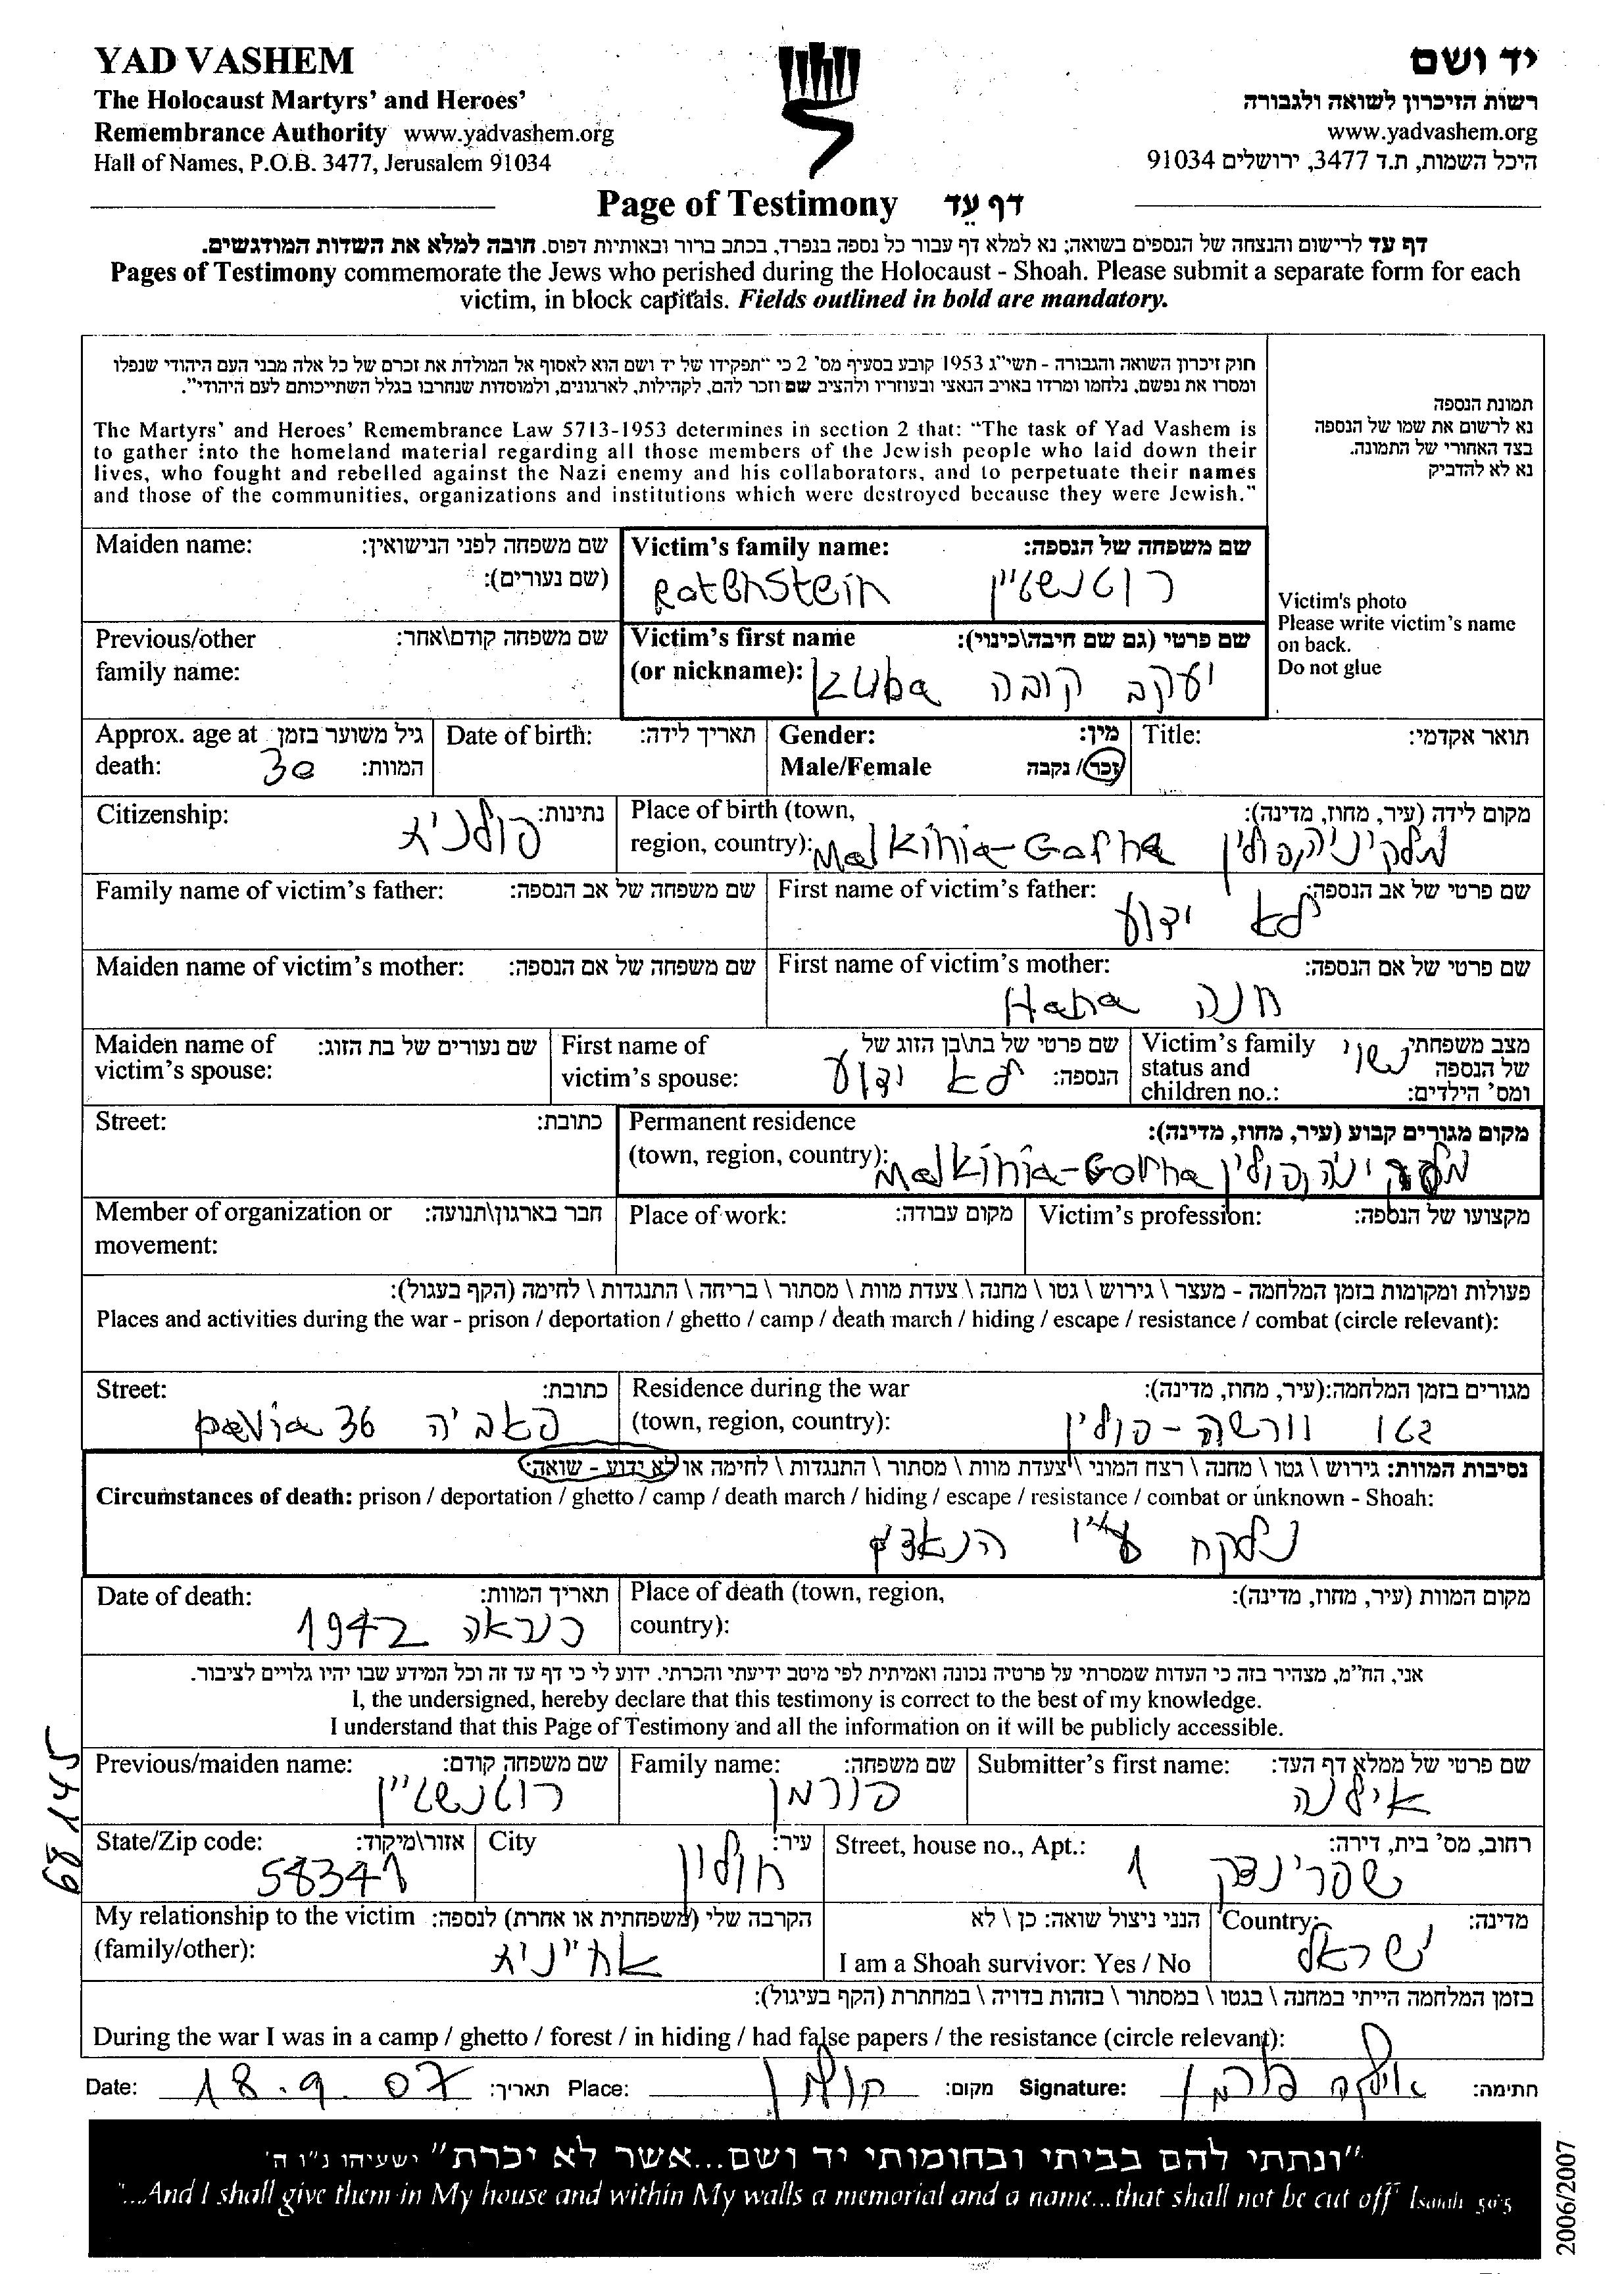 YAD VASHEM
The Holocaust Martyrs' and Heroes'
Remembrance Authority www.yadvashem.org
Hall of Names, P.O.B. 3477, Jerusalem 91034
יד ושם
רשות הזיכרון לשואה ולגבורה
www.yadvashem.org
היכל השמות, ת.ד 3477, ירושלים 91034
Page of Testimony דף עֵד
דף עד לרישום והנצחה של הנספים בשואה; נא למלא דף עבור כל נספה בנפרד, בכתב ברור ובאותיות דפוס. חובה למלא את השדות המודגשים.
Pages of Testimony commemorate the Jews who perished during the Holocaust - Shoah. Please submit a separate form for each
victim, in block capitals. Fields outlined in bold are mandatory.
חוק זיכרון השואה והגבורה - תשי"ג 1953 קובע בסעיף מס' 2 כי "תפקידו של יד ושם הוא לאסוף אל המולדת את זכרם של כל אלה מבני העם היהודי שנפלו
ומסרו את נפשם, נלחמו ומרדו באויב הנאצי ובעוזריו ולהציב שם וזכר להם, לקהילות, לארגונים, ולמוסדות שנחרבו בגלל השתייכותם לעם היהודי".
The Martyrs' and Heroes' Remembrance Law 5713-1953 determines in section 2 that: "The task of Yad Vashem is
to gather into the homeland material regarding all those members of the Jewish people who laid down their
lives, who fought and rebelled against the Nazi enemy and his collaborators, and to perpetuate their names
and those of the communities, organizations and institutions which were destroyed because they were Jewish."
תמונת הנספה
נא לרשום את שמו של הנספה
בצד האחורי של התמונה.
נא לא להדביק
Victim's photo
Please write victim's name
on back.
Do not glue
Maiden name: שם משפחה לפני הנישואין:
(שם נעורים):
Victim's family name: שם משפחה של הנספה:
Rotenstein רוטנשטיין
Previous/other שם משפחה קודם\אחר:
family name:
Victim's first name שם פרטי (גם שם חיבה\כינוי):
(or nickname): Kuba יעקב קובה
Approx. age at גיל משוער בזמן
death: 30 המוות:
Date of birth: תאריך לידה:
Gender: מין:
Male/Female זכר / נקבה
Title: תואר אקדמי:
Citizenship: נתינות: פולנית
Place of birth (town, מקום לידה (עיר, מחוז, מדינה):
region, country): Malkinia-Gorna מלקיניה, פולין
Family name of victim's father: שם משפחה של אב הנספה:
First name of victim's father: שם פרטי של אב הנספה:
לא ידוע
Maiden name of victim's mother: שם משפחה של אם הנספה:
First name of victim's mother: שם פרטי של אם הנספה:
Hana חנה
Maiden name of שם נעורים של בת הזוג:
victim's spouse:
First name of שם פרטי של בת\בן הזוג של
victim's spouse: הנספה: לא ידוע
Victim's family מצב משפחתי נשוי
status and של הנספה
children no.: ומס' הילדים:
Street: כתובת:
Permanent residence מקום מגורים קבוע (עיר, מחוז, מדינה):
(town, region, country): Malkinia-Gorna מלקיניה, פולין
Member of organization or חבר בארגון\תנועה:
movement:
Place of work: מקום עבודה:
Victim's profession: מקצועו של הנספה:
פעולות ומקומות בזמן המלחמה - מעצר \ גירוש \ גטו \ מחנה \ צעדת מוות \ מסתור \ בריחה \ התנגדות \ לחימה (הקף בעגול):
Places and activities during the war - prison / deportation / ghetto / camp / death march / hiding / escape / resistance / combat (circle relevant):
Street: כתובת:
pavia 36 פאביה
Residence during the war מגורים בזמן המלחמה:(עיר, מחוז, מדינה):
(town, region, country): גטו וורשה - פולין
נסיבות המוות: גירוש \ גטו \ מחנה \ רצח המוני \ צעדת מוות \ מסתור \ התנגדות \ לחימה או לא ידוע - שואה:
Circumstances of death: prison / deportation / ghetto / camp / death march / hiding / escape / resistance / combat or unknown - Shoah:
נלקח ע"י הנאצים
Date of death: תאריך המוות:
כנראה 1942
Place of death (town, region, מקום המוות (עיר, מחוז, מדינה):
country):
אני, הח"מ, מצהיר בזה כי העדות שמסרתי על פרטיה נכונה ואמיתית לפי מיטב ידיעתי והכרתי. ידוע לי כי דף עד זה וכל המידע שבו יהיו גלויים לציבור.
I, the undersigned, hereby declare that this testimony is correct to the best of my knowledge.
I understand that this Page of Testimony and all the information on it will be publicly accessible.
Previous/maiden name: שם משפחה קודם:
רוטנשטיין
Family name: שם משפחה:
פורמן
Submitter's first name: שם פרטי של ממלא דף העד:
אילנה
State/Zip code: אזור\מיקוד:
58341
City עיר:
חולון
Street, house no., Apt.: רחוב, מס' בית, דירה:
שפרינצק 1
My relationship to the victim הקרבה שלי (משפחתית או אחרת) לנספה:
(family/other): אחיינית
הנני ניצול שואה: כן \ לא
I am a Shoah survivor: Yes / No
Country: מדינה:
ישראל
בזמן המלחמה הייתי במחנה \ בגטו \ במסתור \ בזהות בדויה \ במחתרת (הקף בעיגול):
During the war I was in a camp / ghetto / forest / in hiding / had false papers / the resistance (circle relevant):
Date: 18.9.07 תאריך: Place: חולון מקום: Signature: אילנה פורמן חתימה:
"ונתתי להם בביתי ובחומותי יד ושם...אשר לא יכרת" ישעיהו נ"ו ה'
"...And I shall give them in My house and within My walls a memorial and a name...that shall not be cut off" Isaiah 56:5
68145
2006/2007